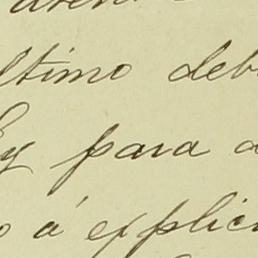 ltimo deb
Ey para a
o á explica